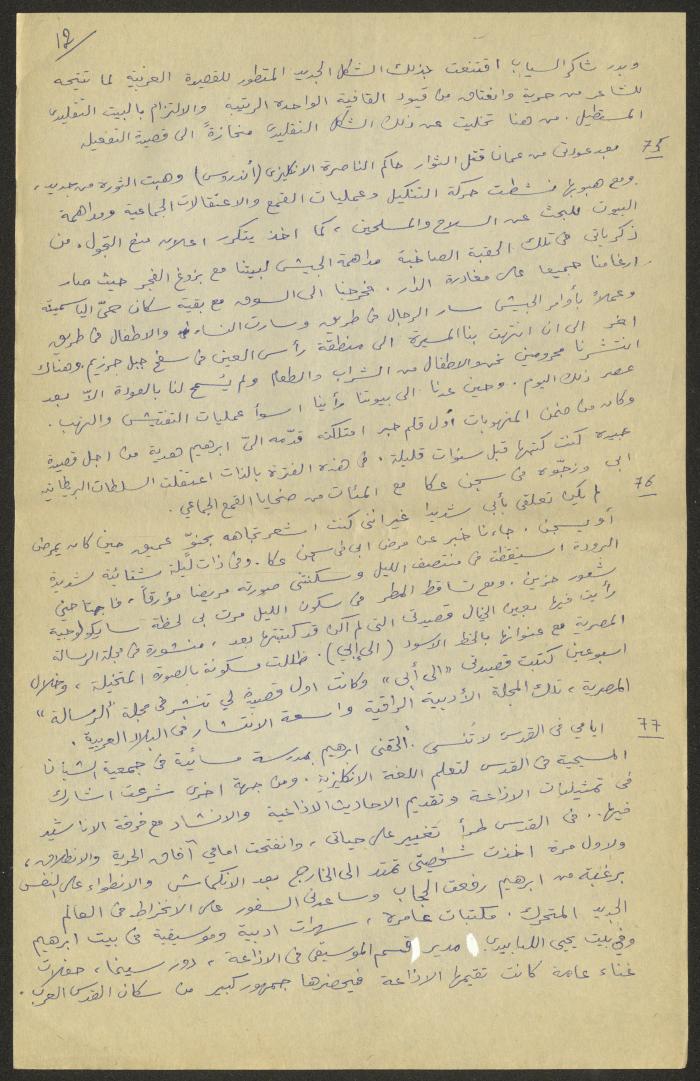 12
وبدر شاكر السياب اقتنعت بذلك الشكل الجديد المتطور للقصيدة العربية لما تتيحه
للشاعر من حرية وانعتاق من قيود القافية الواحدة الرتيبة والالتزام بالبيت التقليدي
المستطيل. من هنا تخليت عن ذلك الشكل التقليدي منحازةً الى قصيدة التفعيله
75 بعد عودتي من عمان قتل الثوار حاكم الناصرة الانكليزي (أندروس) وهبت الثورة من جديد،
ومع هبوبها نشطت حركة التنكيل وعمليات القمع والاعتقالات الجماعية ومداهمة
البيوت للبحث عن السلاح والمسلحين، كما اخذ يتكرر اعلان منع التجول. من
ذكرياتي في تلك الحقبة الصاخبة مداهمة الجيش لبيتنا مع بزوغ الفجر حيث صار
ارغامنا جميعا على مغادرة الدار. فخرجنا الى السوق مع بقية سكان حيّ الياسمينة
وعملاً بأوامر الجيش سار الرجال في طريق وسارت النساء والاطفال في طريق
اخر الى ان انتهت بنا المسيرة الى منطقة رأس العين في سفح جبل جرزيم. وهناك
انتشرنا محرومين نحن والاطفال من الشراب والطعام ولم يُسمح لنا بالعودة الاّ بعد
عصر ذلك اليوم. وحين عدنا الى بيوتنا رأينا اسوأ عمليات التفتيش والنهب.
وكان من ضمن المنهوبات أول قلم حبر امتلكته قدّمه اليّ ابرهيم هدية من اجل قصيدة
جيدة كنت كتبتها قبل سنوات قليلة. في هذه الفترة بالذات اعتقلت السلطات البريطانية
ابي وزجّوه في سجن عكا مع المئات من ضحايا القمع الجماعي.
76 لم يكن تعلقي بأبي شديدا غير انني كنت اشعر تجاهه بحنوّ عميق حين كان يمرض
أو يسجن. جاءنا خبر عن مرض ابي في سجن عكا. وفي ذات ليلة شتائية شديدة
البرودة استيقظت في منتصف الليل وسكنتني صورته مريضا مؤرقاً، فاجتاحني
شعور حزين. ومع تساقط المطر في سكون الليل مرت بي لحظة سايكولوجية
رأيت فيها بعين الخيال قصيدتي التي لم اكن قد كتبتها بعد، منشورة في مجلة الرسالة
المصرية مع عنوانها بالخط الاسود (الى أبي). ظللت مسكونة بالصورة المتخيلة، وخلال
اسبوعين كتبت قصيدتي "الى أبي" وكانت اول قصيدة لي تنشر في مجلة "الرسالة"
المصرية، تلك المجلة الأدبية الراقية واسعة الانتشار في البلاد العربية.
77 ايامي في القدس لا تُنسى. ألحقني ابرهيم بمدرسة مسائية في جمعية الشبان
المسيحية في القدس لتعلم اللغة الانكليزية. ومن جهة اخرى شرعت اشارك
في تمثيليات الاذاعة وتقديم الاحاديث الاذاعية والانشاد مع فرقة الاناشيد
فيها.. في القدس طرأ تغيير على حياتي، وانفتحت امامي آفاق الحرية والانطلاق،
ولاول مرة اخذت شخصيتي تمتد الى الخارج بعد الانكماش والانطواء على النفس
برغبة من ابرهيم رفعت الحجاب وساعدني السفور على الانخراط في العالم
الجديد المتحرك. مكتبات عامرة، سهرات ادبية وموسيقية في بيت ابرهيم
وفي بيت يحيى اللبابيدي مدير قسم الموسيقى في الاذاعة، دور سينما، حفلات
غناء عامة كانت تقيمها الاذاعة فيحضرها جمهور كبير من سكان القدس العرب.